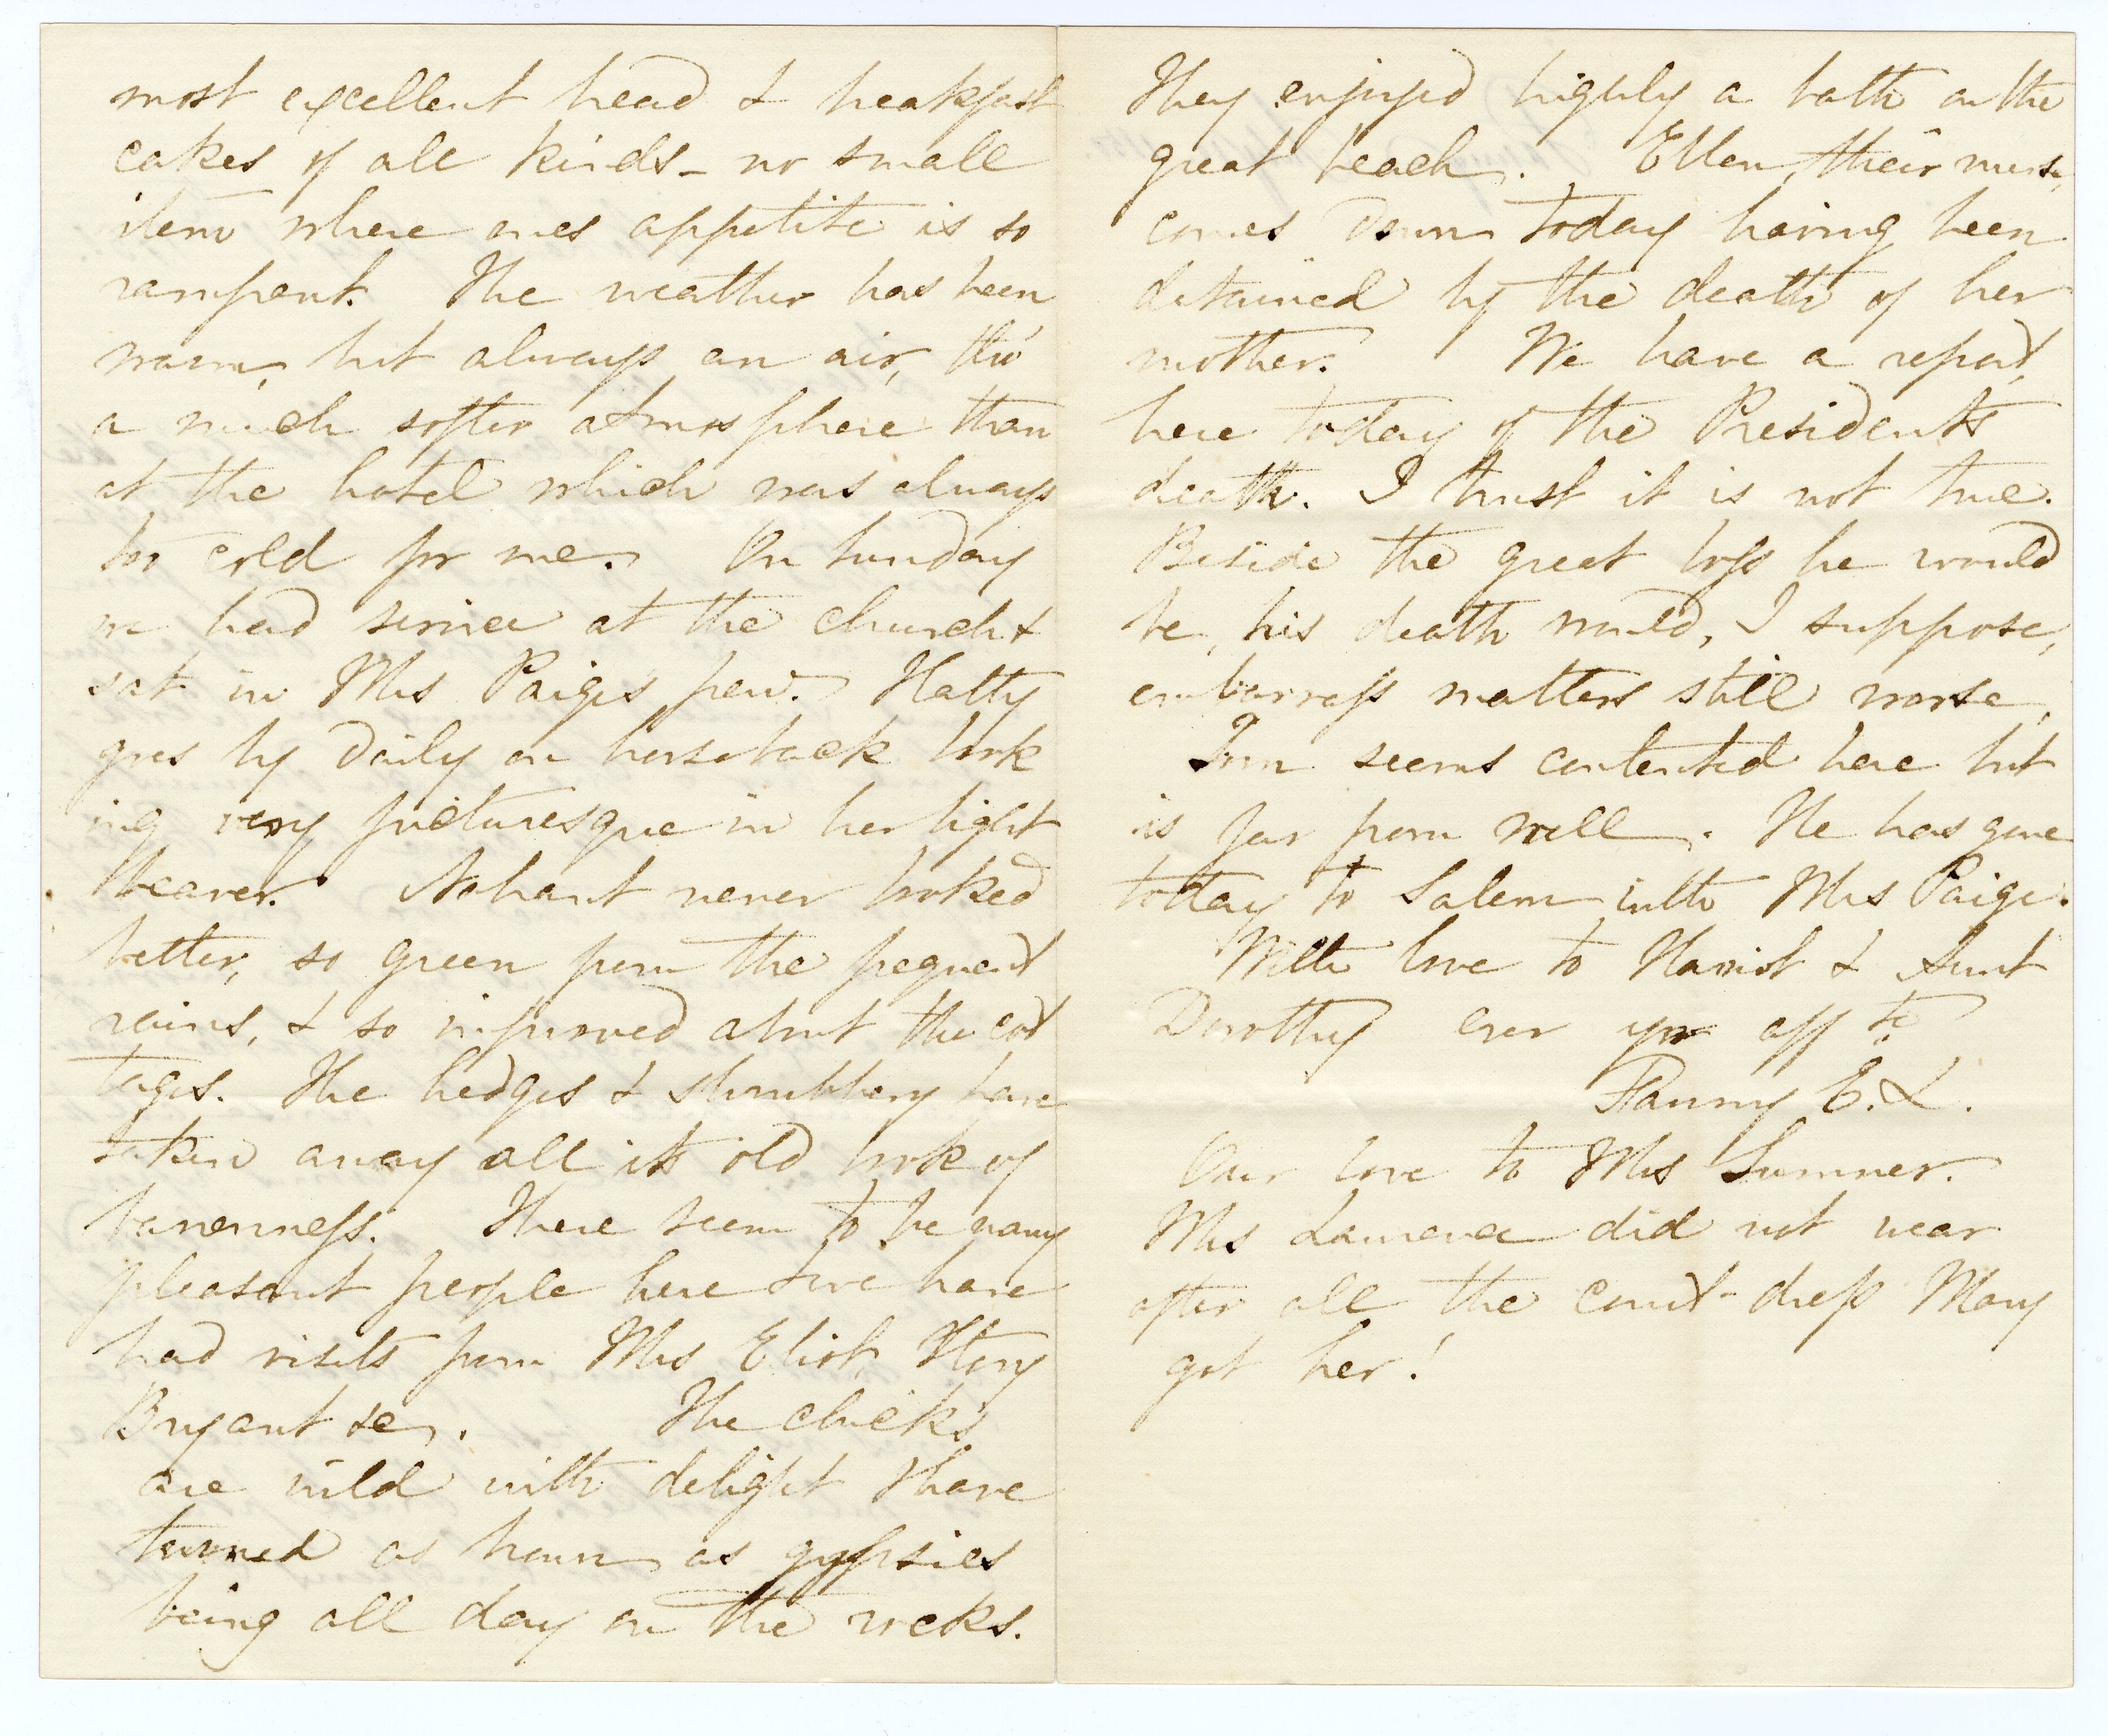 most excellent bread & breakfast
cakes of all kinds – no small
item where ones appetite is so
rampant. The weather has been
warm, but always an air, tho'
a much softer atmosphere than
at the hotel which was always
too cold for me. On Sunday
we had service at the church &
sat in Mrs Paige's pew. Hatty
goes by daily on horseback look
ing very picturesque in her light
beaver. Nahant never looked
better, so green from the frequent
rains, & so improved about the cot
tages. The hedges & shrubbery have
taken away all its old look of
barenness. There seem to be many
pleasant people here & we have
had visits from Mrs Eliot, Story
Bryant &c. The chicks
are wild with delight & have
turned as brown as gypsies
being all day on the rocks.
They enjoyed highly a bath on the
great beach. Ellen, their nurse,
comes down today having been
detained by the death of her
mother. We have a report,
here today of the Presidents
death. I trust it is not true.
Beside the great loss he would
be, his death would, I suppose,
embarrass matters still worse.
Tom seems contented here but
is far from well. He has gone
today to Salem with Mrs Paige.
With love to Harriot & Aunt
Dorothy ever yr aff te
Fanny E. L.
Our love to Mrs Sumner.
Mrs Lawrence did not wear
after all the court-dress Mary
got her!